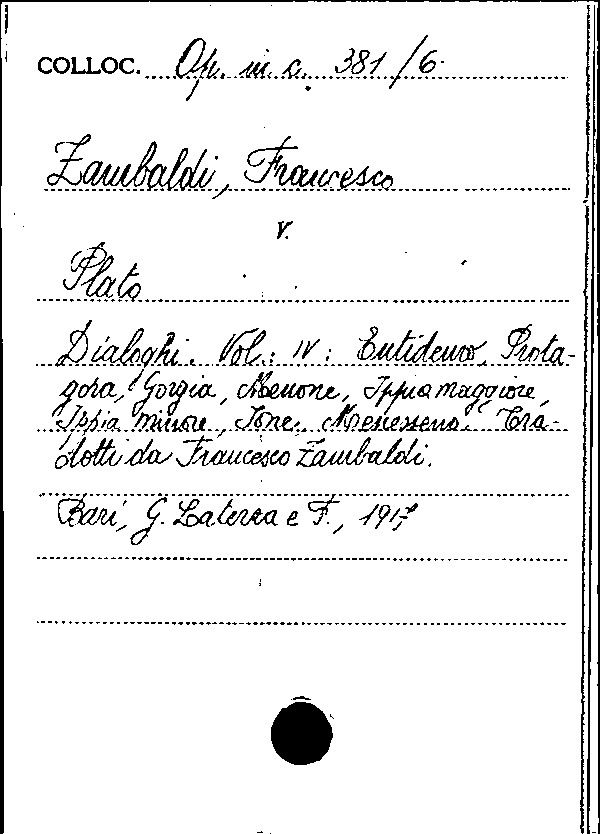 COLLOC. Op. in c. 381/6.
Zambaldi, Francesco
v.
Plato
Dialoghi. Vol.: IV: Eutidemo, Prota-
gora, Gorgia, Menone, Ippia maggiore,
Ippia minore, Ione, Menesseno. Tra-
dotti da Francesco Zambaldi.
Bari, G. Laterza e F.,